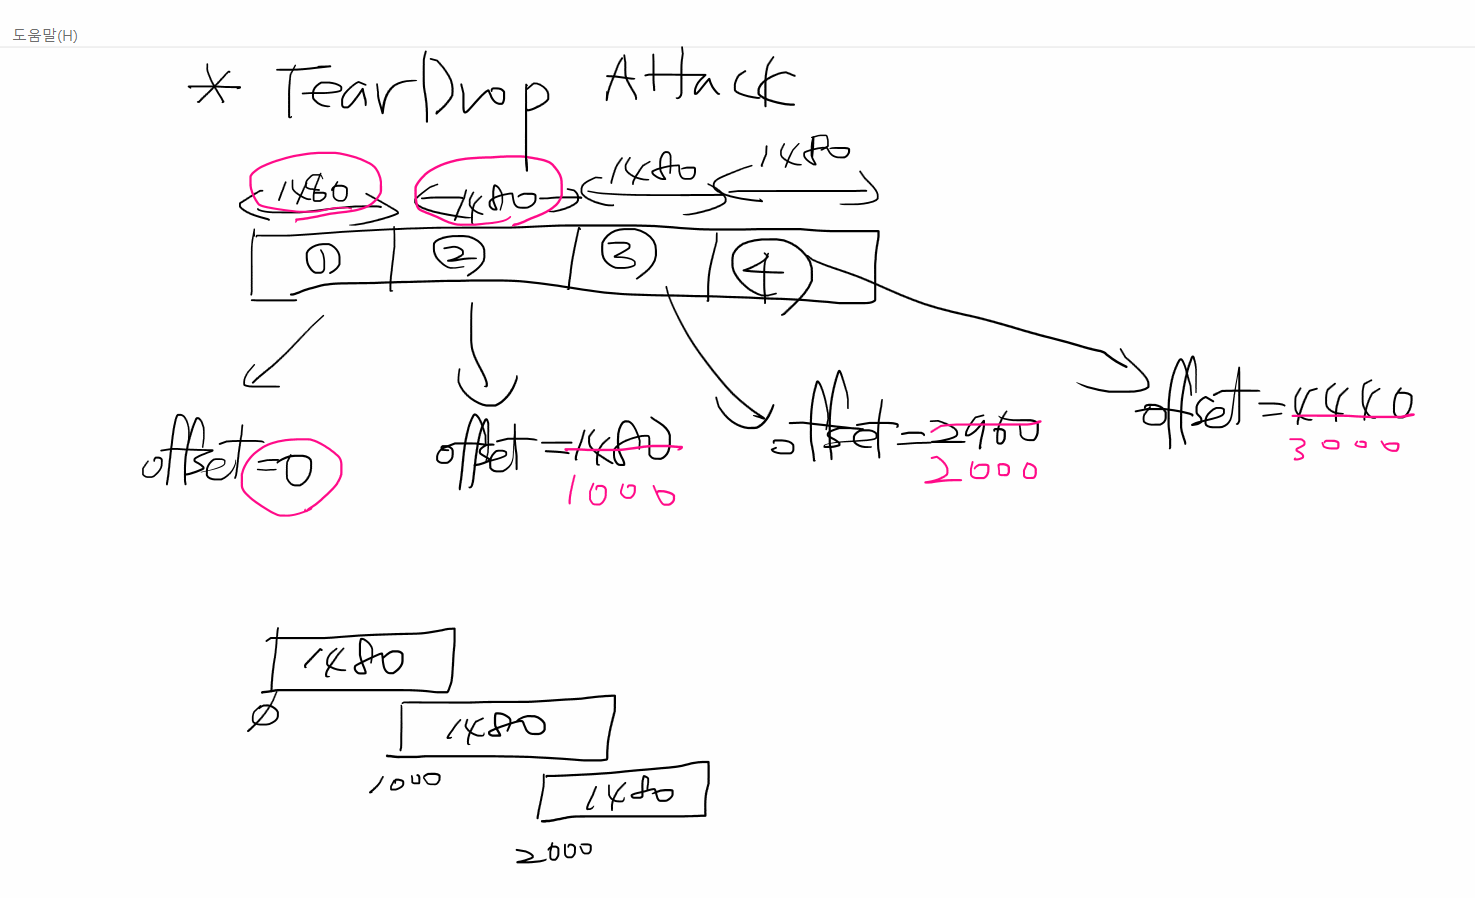 도움말(H)
* TearDrop Attack
1480 1480 1480 1480
① ② ③ ④
offset=0 offset=1480 offset=2960 offset=4440
1000 2000 3000
1480
0
1480
1000
1480
2000